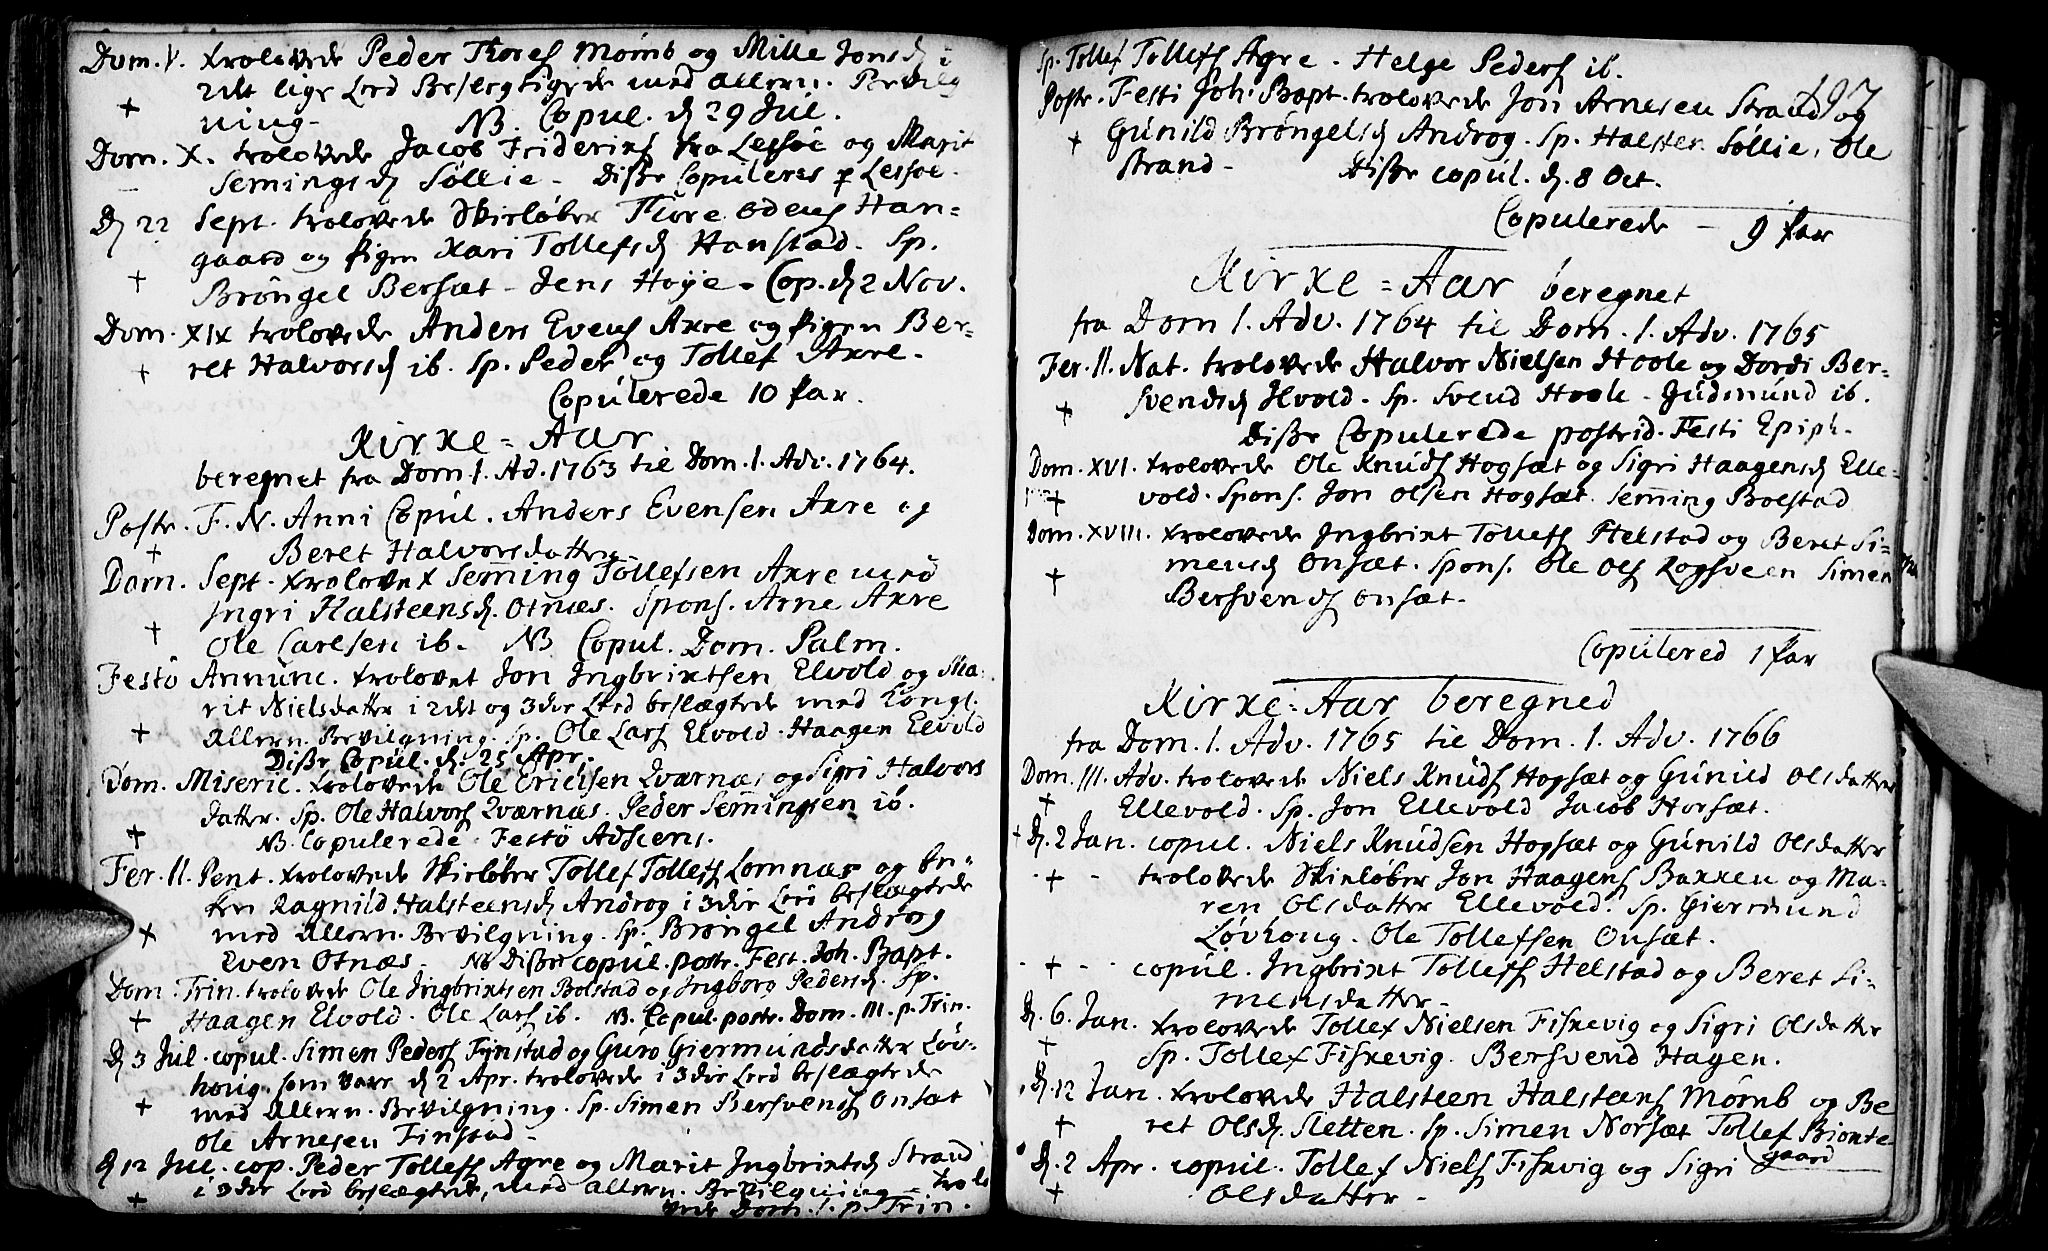 Dom. V. trolovede Peder Thores Mømb og Mille Jonsd. i
2det lige Leed Beslegtigede med allern. Bevilg
ning. NB. Copul. d. 29 Jul.
Dom. X. trolovede Jacob Friderichs fra Lessøe og Marit
Semingsd. Søllie. Disse Copuleres p. Lessøe.
D. 22 Sept. trolovede Skieløber Thore Odens Han=
gaard og Pigen Kari Tollefsd. Hanstad. Sp.
Brøngel Bersæt. Jens Høye. Cop. d. 2 Nov.
Dom. XIX trolovede Anders Evens Axre og Pigen Ber=
ret Halvorsd. ib. Sp. Peder og Tollef Axre.
Copulerede 10 Par.
Kirke=Aar
beregnet fra Dom. 1. Ad. 1763 til Dom. 1. Adv. 1764.
Postr. F. N. Anni Copul. Anders Evensen Axre og
Beret Halvorsdatter
Dom. Sept. trolovet Seming Tollefsen Axre med
Ingri Halsteensd. Otnæs. Spons. Arne Axre
Ole Carlsen ib. NB Copul. Dom. Palm.
Festo Annunc. trolovet Jon Ingbrixtsen Elvold og Ma=
rit Nielsdatter i 2det og 3die Leed beslægtede med Kongl.
Allern. Bevilgning. Sp. Ole Lars Elvold. Haagen Elvold
Disse Copul. d. 25 Apr.
Dom. Miseric. trolovede Ole Erichsen Qværnæs og Sigri Halvors
datter. Sp. Ole Halvors Qværnæs. Peder Semingsen ib.
NB. Copulerede. Festo Adscens.
Fer. II. Pent. trolovede Skieløber Tollef Tollefs Lomnæs og En=
ken Ragnild Halsteensd. Androg i 3die Leed beslægtede
med Allern. Bevilgning. Sp. Brøngel Androg
Even Otnæs. NB Disse copul. postr. Fest. Joh. Bapt.
Dom. Trin. trolovede Ole Ingbrixtsen Bolstad og Ingborg Pedersd. Sp.
Haagen Elvold. Ole Lars ib. NB. Copul. postr. Dom. III. p. Trin.
D. 3 Jul. copul. Simen Peders Fynstad og Guro Giermundsdatter Løv=
houg. som vare d. 2 Apr. trolovede i 3die Leed beslægtede
med Allern. Bevilgning. Sp. Simen Bersvends Onsæt
Ole Arnesen Finstad.
D. 12 Jul. cop. Peder Tollefs Agre og Marit Ingbrixtsd. Strand
i 3die Leed beslægtede, med allern. Bevilgning. trolo
vede Dom. 1. p. Trin.
Sp. Tollef Tollefs Agre. Helge Peders ib.
Postr. Festi Joh. Bapt. trolovede Jon Arnesen Strand og
Gunild Brøngelsd. Androg. Sp. Halsten Søllie, Ole
Strand. Disse copul. d. 8 Oct.
Copulerede - 9 Par
Kirke=Aar beregnet
fra Dom 1. Adv. 1764 til Dom. 1. Adv. 1765
Fer. II. Nat. trolovede Halvor Nielsen Hoole og Dordi Ber=
svendsd. Hvold. Sp. Svend Hoole. Gudmund ib.
Disse Copulerede postrid. Festi Epiph.
Dom. XVI. trolovede Ole Knuds Hogsæt og Sigri Haagensd. Elle=
vold. Spons. Jon Olsen Hogsæt. Seming Bolstad
Dom. XVIII. trolovede Ingbrixt Tollefs Helstad og Beret Si=
mensd. Onsæt. Spons. Ole Ols Rogsveen Simen
Bersvends Onsæt.
Copulered 1 Par
Kirke=Aar beregned
fra Dom. 1. Adv. 1765 til Dom. 1. Adv. 1766
Dom. III. Adv. trolovede Niels Knuds Hogsæt og Gunild Olsdatter
Ellevold. Sp. Jon Ellevold Jacob Horsæt.
D. 2 Jan. copul. Niels Knudsen Hogsæt og Gunild Olsdatter
trolovede Skieløber Jon Haagens Bakken og Ma=
ren Olsdatter Ellevold. Sp. Giermund
Løvhoug. Ole Tollefsen Onsæt.
copul. Ingbrixt Tollefs Helstad og Beret Si=
mensdatter.
D. 6. Jan. trolovede Tollef Nielsen Fiskevig og Sigri Olsdatter
Sp. Tollef Fiskevig. Bersvend Hagen.
D. 12 Jan. trolovede Halsteen Halsteens Mømb og Be
ret Olsd. Sletten. Sp. Simen Norsæt Tollef Bionte
gaard
D. 2 Apr. copul. Tollef Niels Fiskvig og Sigri
Olsdatter.